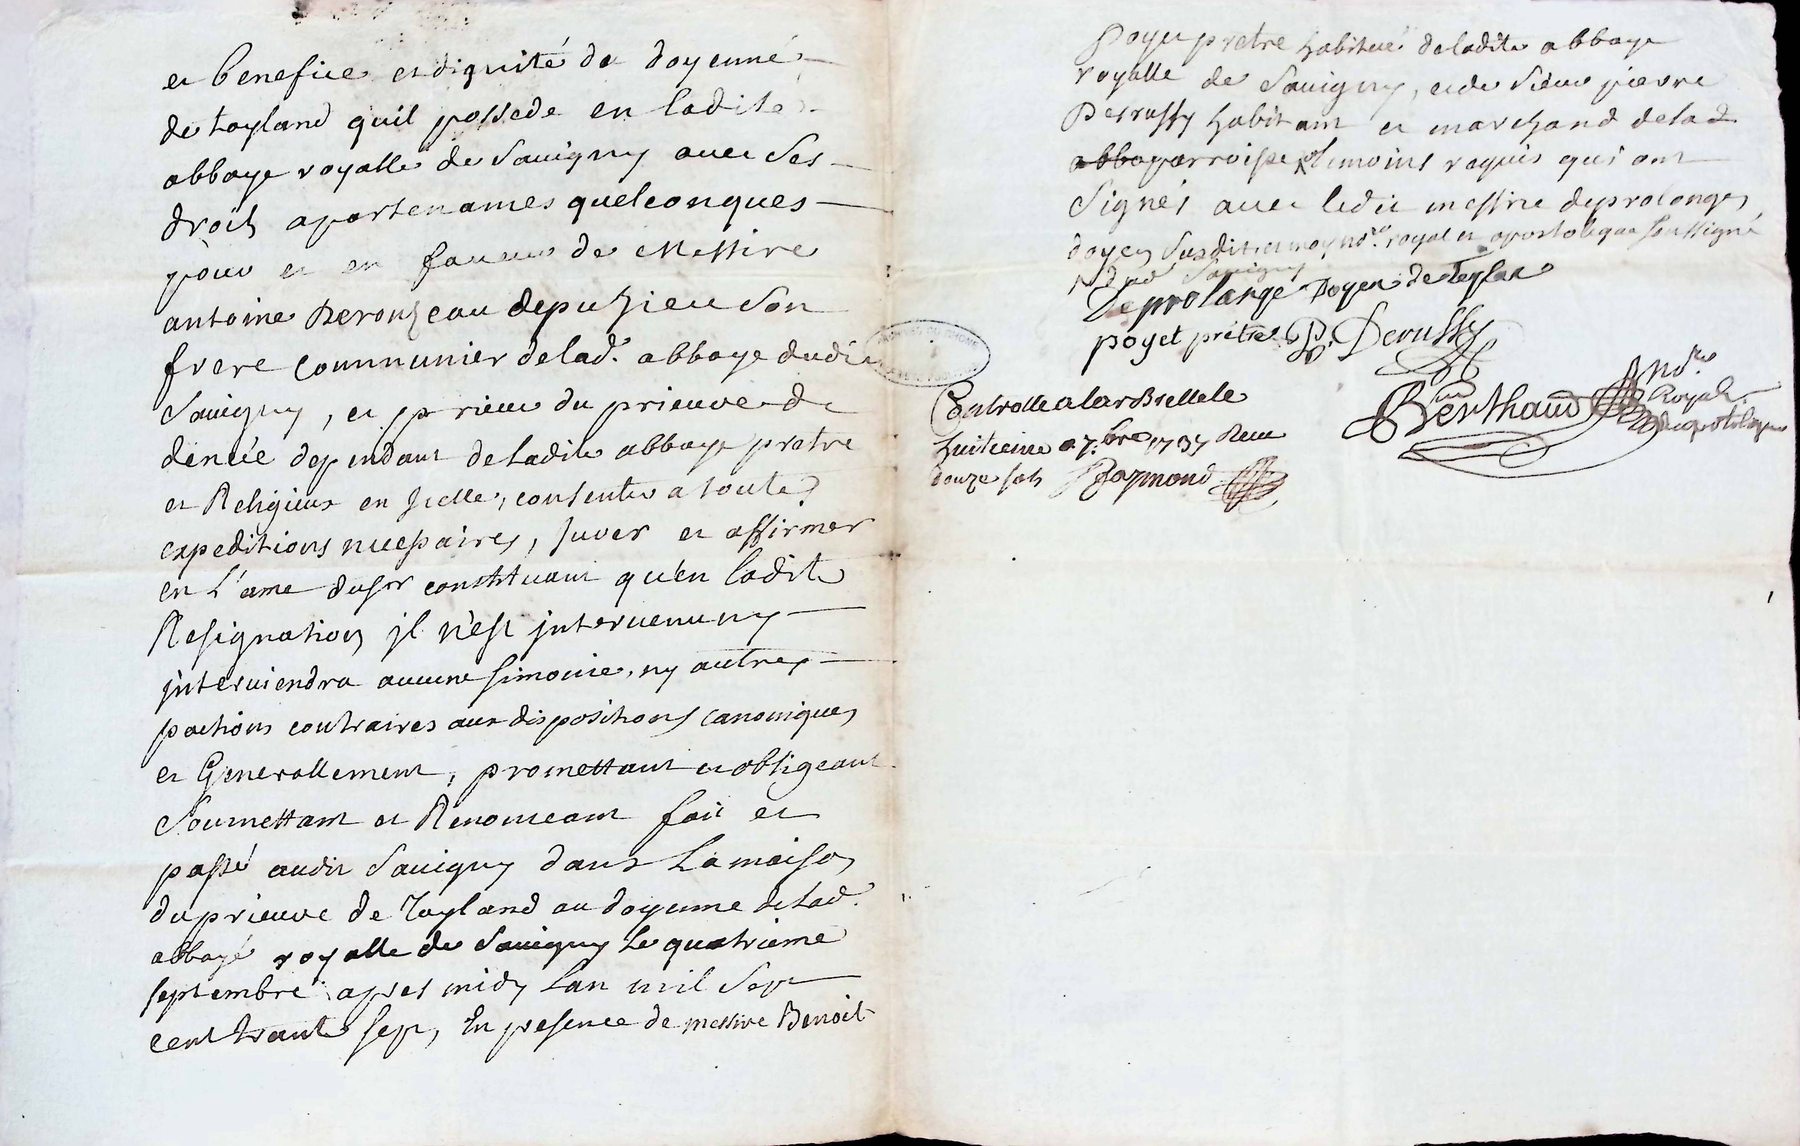 et benefice et dignité de doyenné
de tayland quil possede en ladite
abbaye royalle de Savigny avec ses
droits apartenances quelconques
pour et en faveur de Messire
antoine Deronzeau depuzieu son
frere communier delad.e abbaye dudit
Savigny, et prieur du prieuré de
denéé dependant deladite abbaye pretre
et Religieux en jcelle, consentir a toutes
expeditions necessaires, Jurer et affirmer
en l'ame dusr constituant qu'en ladite
Resignation jl n'est jntervenu ny
jnterviendra aucune simonie, ny autres
pactions contraires aux dispositions canoniques
et Generallement, promettant et obligeant
Soumettant et Renonceant fait et
passé audit Savigny dans la maison
du prieuré de Tayland au doyenne delad.
abbaye royalle de Savigny le quatrieme
septembre apres midy lan mil sept
cent trante sept, En presence de messire Benoit
Poyet pretre habitué deladite abbaye
royalle de Savigny, et de Sieur pierre
Deroussy habitant et marchand delad
parroisse temoins requis qui ont
signés avec ledit messire deprolange
doyen susdit et moy no.re royal et apostolique soussigné
Savigny
Deprolange Doyen de Teylan
poyet prêtre P. Deroussy
Berthaud no.re
Royal
et apostolique
Controlle a larbrelle le
huitieme 7.bre 1737 Receu
douze sols Raymond